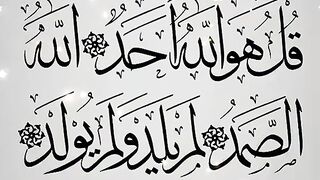 قُلْ هُوَ اللَّهُ أَحَدٌ ۞ اللَّهُ
الصَّمَدُ ۞ لَمْ يَلِدْ وَلَمْ يُولَدْ ۞